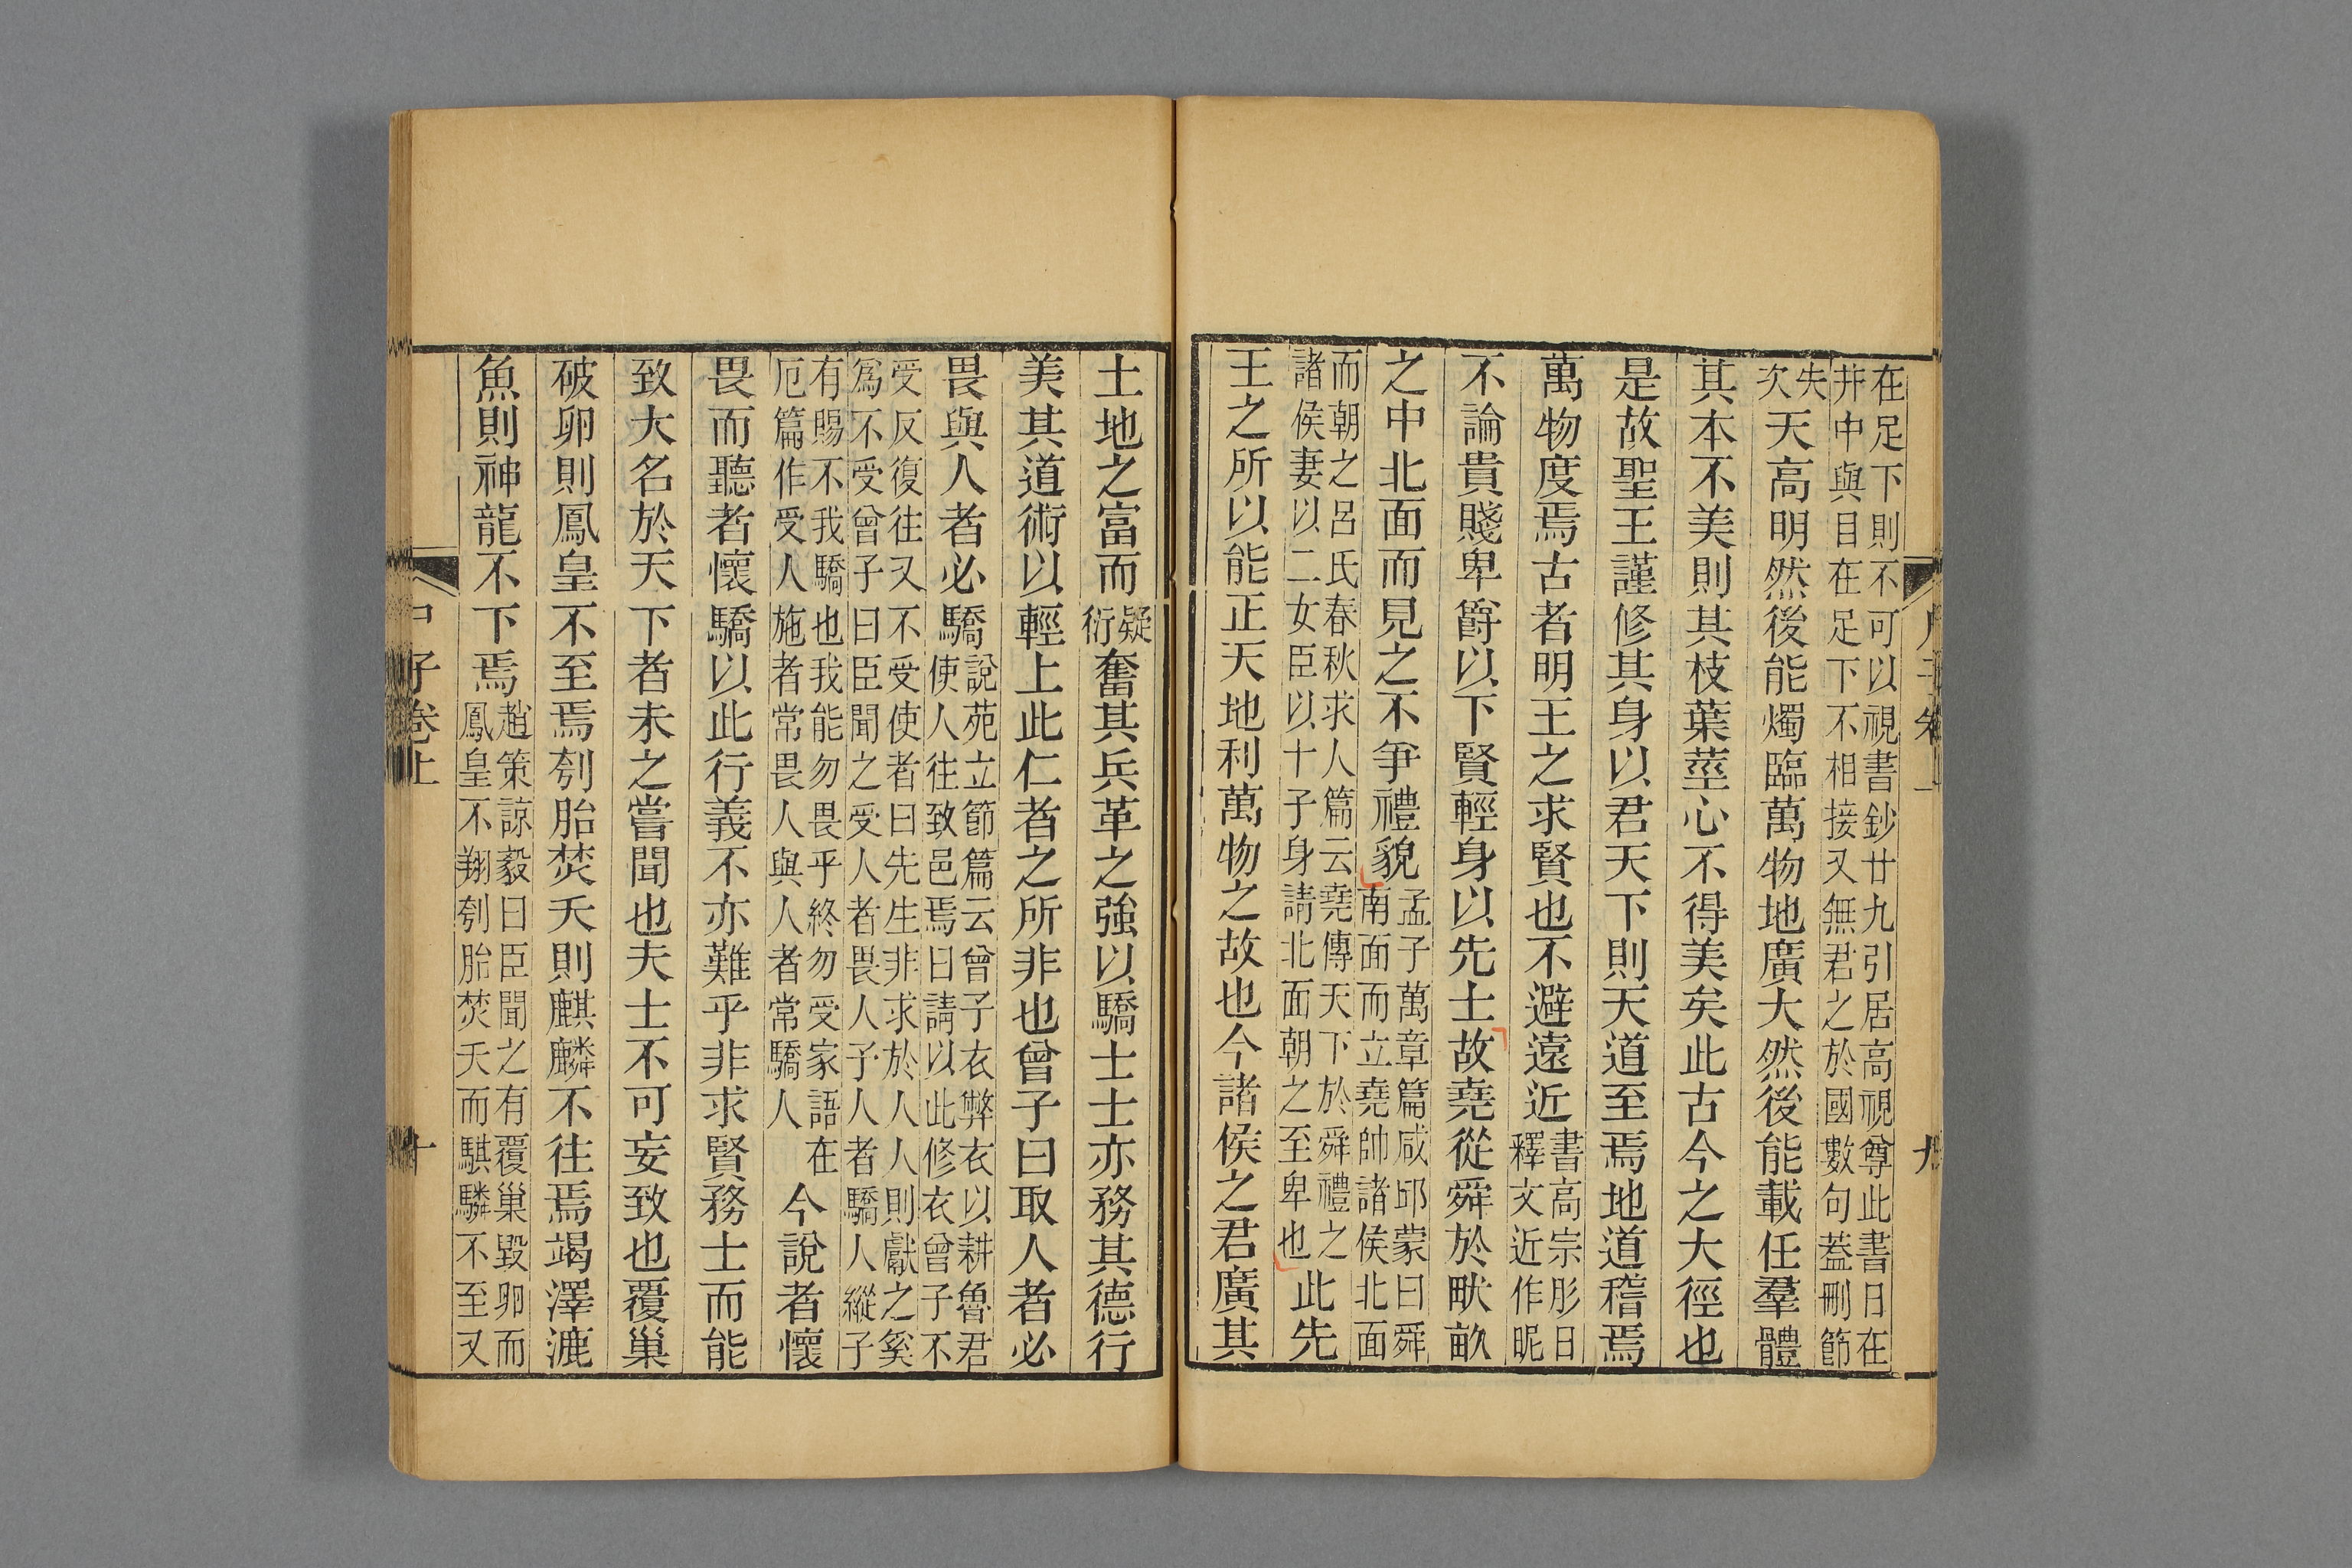 在足下則不可以視書鈔廿九引居高視尊此書日在
井中與目在足下不相接又無君之於國數句葢刪節
失次天高明然後能燭臨萬物地廣大然後能載任羣體
其本不美則其枝葉莖心不得美矣此古今之大徑也
是故聖王謹修其身以君天下則天道至焉地道稽焉
萬物度焉古者明王之求賢也不避遠近書高宗肜日釋文近作昵
不論貴賤卑爵以下賢輕身以先士故堯從舜於畎畝
之中北面而見之不爭禮貌孟子萬章篇咸邱蒙曰舜南面而立堯帥諸侯北面
而朝之呂氏春秋求人篇云堯傳天下於舜禮之諸侯妻以二女臣以十子身請北面朝之至卑也此先
王之所以能正天地利萬物之故也今諸侯之君廣其
九
土地之富而疑衍奮其兵革之強以驕士士亦務其德行
美其道術以輕上此仁者之所非也曾子曰取人者必
畏與人者必驕說苑立節篇云曾子衣弊衣以耕魯君使人往致邑焉曰請以此修衣曾子不
受反復往又不受使者曰先生非求於人人則獻之奚爲不受曾子曰臣聞之受人者畏人予人者驕人縱子
有賜不我驕也我能勿畏乎終勿受家語在厄篇作受人施者常畏人與人者常驕人今說者懷
畏而聽者懷驕以此行義不亦難乎非求賢務士而能
致大名於天下者未之嘗聞也夫士不可妄致也覆巢
破卵則鳳皇不至焉刳胎焚夭則麒麟不往焉竭澤漉
魚則神龍不下焉趙策諒毅曰臣聞之有覆巢毀卵而鳳皇不翔刳胎焚夭而騏驎不至又
子卷上
十